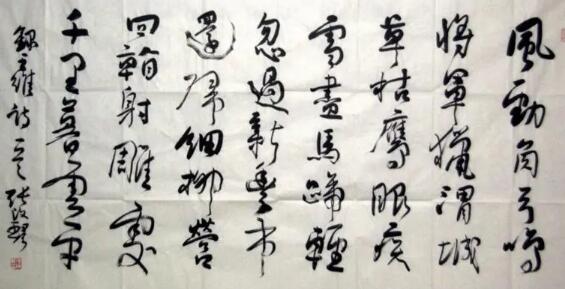 風勁角弓鳴
將軍獵渭城
草枯鷹眼疾
雪盡馬蹄輕
忽過新豐市
還歸細柳營
回看射雕處
千里暮雲平
錄王維詩一首 張